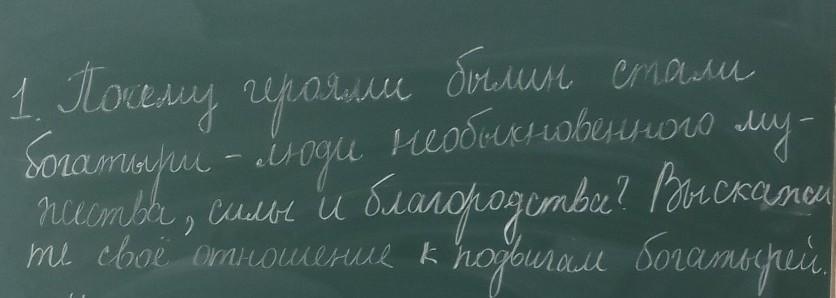 1. Почему героями былин стали
богатыри - люди необыкновенного му-
жества, силы и благородства? Выскажи
те своё отношение к подвигам богатырей.